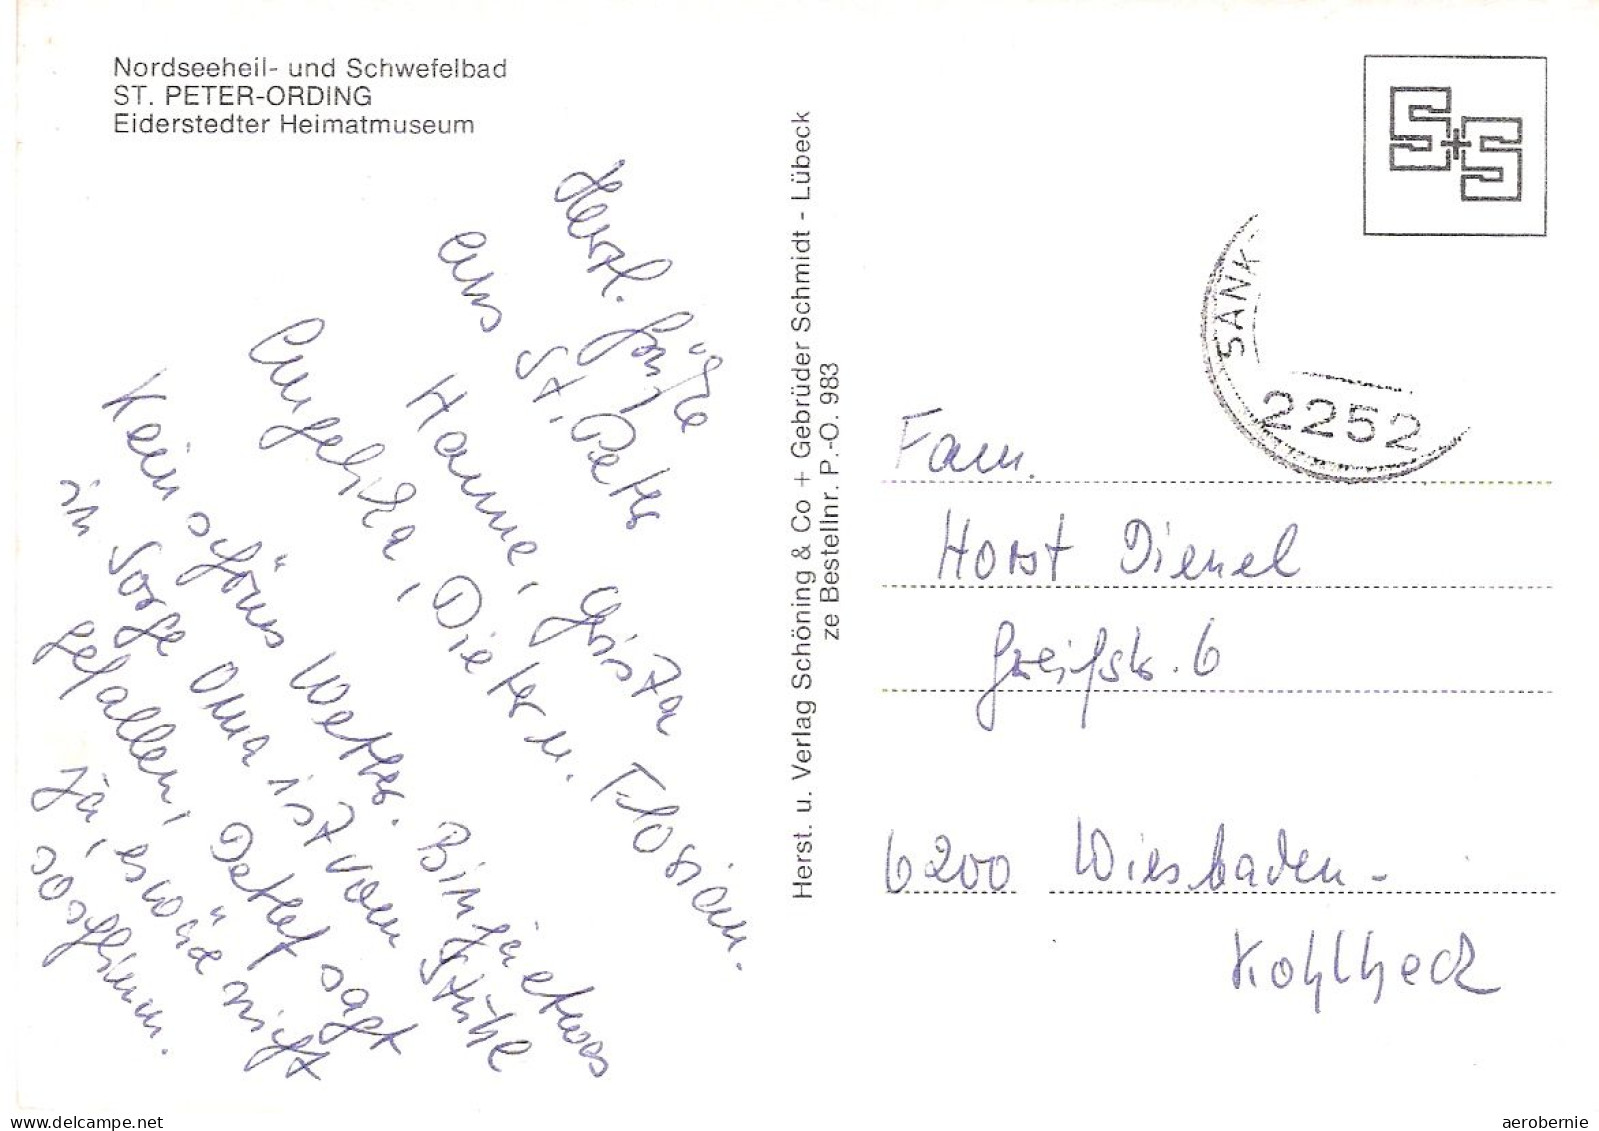 Nordseeheil- und Schwefelbad
ST. PETER-ORDING
Eiderstedter Heimatmuseum
Herzl. Grüße
aus St. Peter
Hanne, Christa
Angelika, Dieter u. Florian.
Kein schönes Wetter. Bin ja etwas
in Sorge Oma ist vom Stuhl
gefallen, Detlef sagt
ja, es wäre nicht
so schlimm.
Herst. u. Verlag Schöning & Co + Gebrüder Schmidt - Lübeck
ze Bestellnr. P.-O. 983
S+S
SANK
2252
Fam.
Horst Dienel
Greifstr. 6
6200 Wiesbaden-
Kohlheck
aerobernie